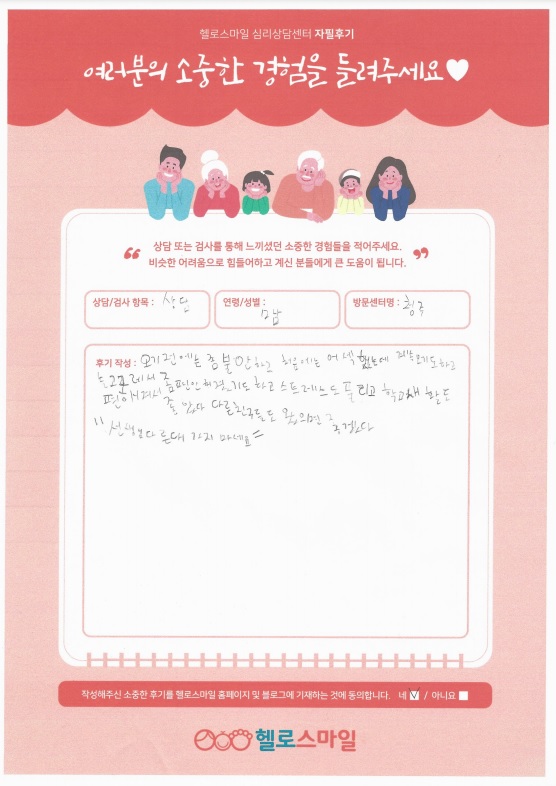 헬로스마일 심리상담센터 자필후기
여러분의 소중한 경험을 들려주세요
상담 또는 검사를 통해 느끼셨던 소중한 경험들을 적어주세요.
비슷한 어려움으로 힘들어하고 계신 분들에게 큰 도움이 됩니다.
상담/검사 항목 : 상담
연령/성별 :
방문센터명 : 청주
후기 작성 : 오기전에는 좀 불안하고 처음에는 어색했는데 재밌기도하고
좀편안해졌기도 하고 스트레스도 풀리고 학교생활도
편이
줄 았다 다른친구들도 왔으면
좋겠다
"선생님 다른데 가지 마세요"
작성해주신 소중한 후기를 헬로스마일 홈페이지 및 블로그에 기재하는 것에 동의합니다. 네 / 아니요
헬로스마일